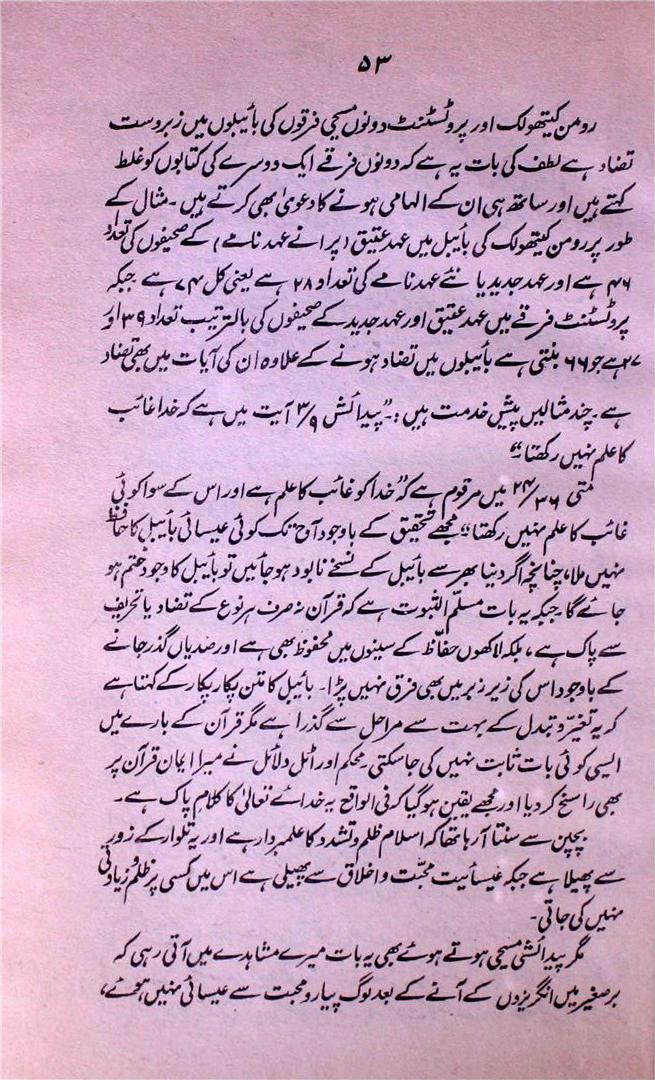 ۵۳
رومن کیتھولک اور پروٹسٹنٹ دونوں مسیحی فرقوں کی بائیبلوں میں زبروست
تضاد ہے لطف کی بات یہ ہے کہ دونوں فرقے ایک دوسرے کی کتابوں کو غلط
کہتے ہیں اور ساتھ ہی ان کے الہامی ہونے کا دعویٰ بھی کرتے ہیں۔ مثال کے
طور پر رومن کیتھولک کی بائیبل میں عہد عتیق (پرانے عہد نامے) کے صحیفوں کی تعداد
۴۶ ہے اور عہد جدید یا نئے عہد نامے کی تعداد ۲۸ ہے یعنی کل ۷۴ ہے جبکہ
پروٹسٹنٹ فرقے میں عہد عتیق اور عہد جدید کے صحیفوں کی بالترتیب تعداد ۳۹ اور
۲۷ ہے جو ۶۶ بنتی ہے بائیبلوں میں تضاد ہونے کے علاوہ ان کی آیات میں بھی تضاد
ہے۔ چند مثالیں پیش خدمت ہیں :۔ "پیدائش ۳/۹ آیت میں ہے کہ خدا غائب
کا علم نہیں رکھتا۔"
متی ۲۴/۳۶ میں مرقوم ہے کہ "خدا کو غائب کا علم ہے اور اس کے سوا کوئی
غائب کا علم نہیں رکھتا" مجھے تحقیق کے باوجود آج تک کوئی عیسائی بائیبل کا حافظ
نہیں ملا، چنانچہ اگر دنیا بھر سے بائیبل کے نسخے نابود ہو جائیں تو بائیبل کا وجود ختم ہو
جائے گا۔ جبکہ یہ بات مسلّم الثبوت ہے کہ قرآن نہ صرف ہر نوع کے تضاد یا تحریف
سے پاک ہے، بلکہ لاکھوں حفّاظ کے سینوں میں محفوظ بھی ہے اور صدیاں گذر جانے
کے باوجود اس کی زیر زبر میں بھی فرق نہیں پڑا۔ بائیبل کا متن پکار پکار کے کہتا ہے
کہ یہ تغیّر و تبدل کے بہت سے مراحل سے گذرا ہے مگر قرآن کے بارے میں
ایسی کوئی بات ثابت نہیں کی جاسکتی۔ محکم اور اٹل دلائل نے میرا ایمان قرآن پر
بھی راسخ کر دیا اور مجھے یقین ہو گیا کہ فی الواقع یہ خدائے تعالیٰ کا کلام پاک ہے۔
بچپن سے سنتا آرہا تھا کہ اسلام ظلم و تشدد کا علمبردار ہے اور یہ تلوار کے زور
سے پھیلا ہے جبکہ عیسائیت محبّت و اخلاق سے پھیلی ہے اس میں کسی پر ظلم و زیادتی
نہیں کی جاتی۔
مگر پیدائشی مسیحی ہوتے ہوئے بھی یہ بات میرے مشاہدے میں آتی رہی کہ
برصغیر میں انگریزوں کے آنے کے بعد لوگ پیار و محبت سے عیسائی نہیں ہوئے،